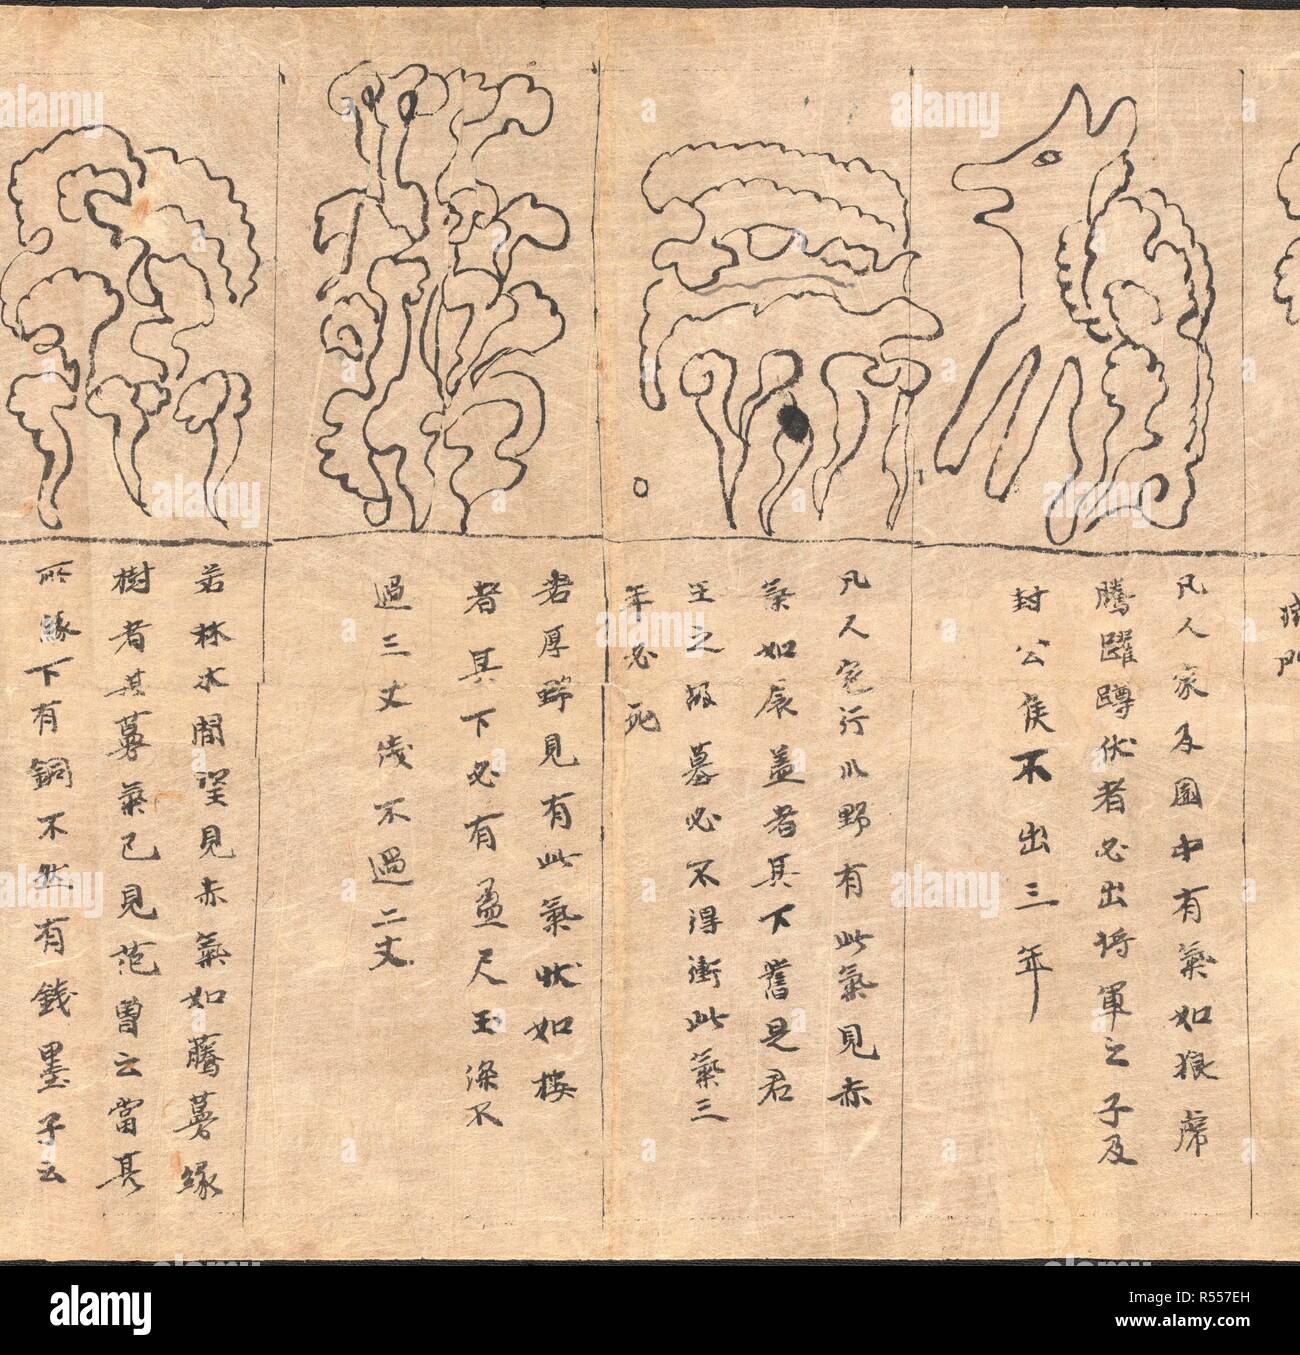 凡人家及園中有氣如狼虎
騰躍蹲伏者必出將軍之子及
封公侯不出三年
凡人行川野有此氣見赤
氣如辰盖者其下舊是君
王之墓必不得衝此氣三
年必死
若厚野見有此氣狀如樓
者其下必有盈尺玉深不
過三丈淺不過二丈
若林木間望見赤氣如騰蔓緣
樹者其蔓氣已見范曾云當其
所緣下有銅不然有錢墨子云
alamy
Image ID: R557EH
www.alamy.com